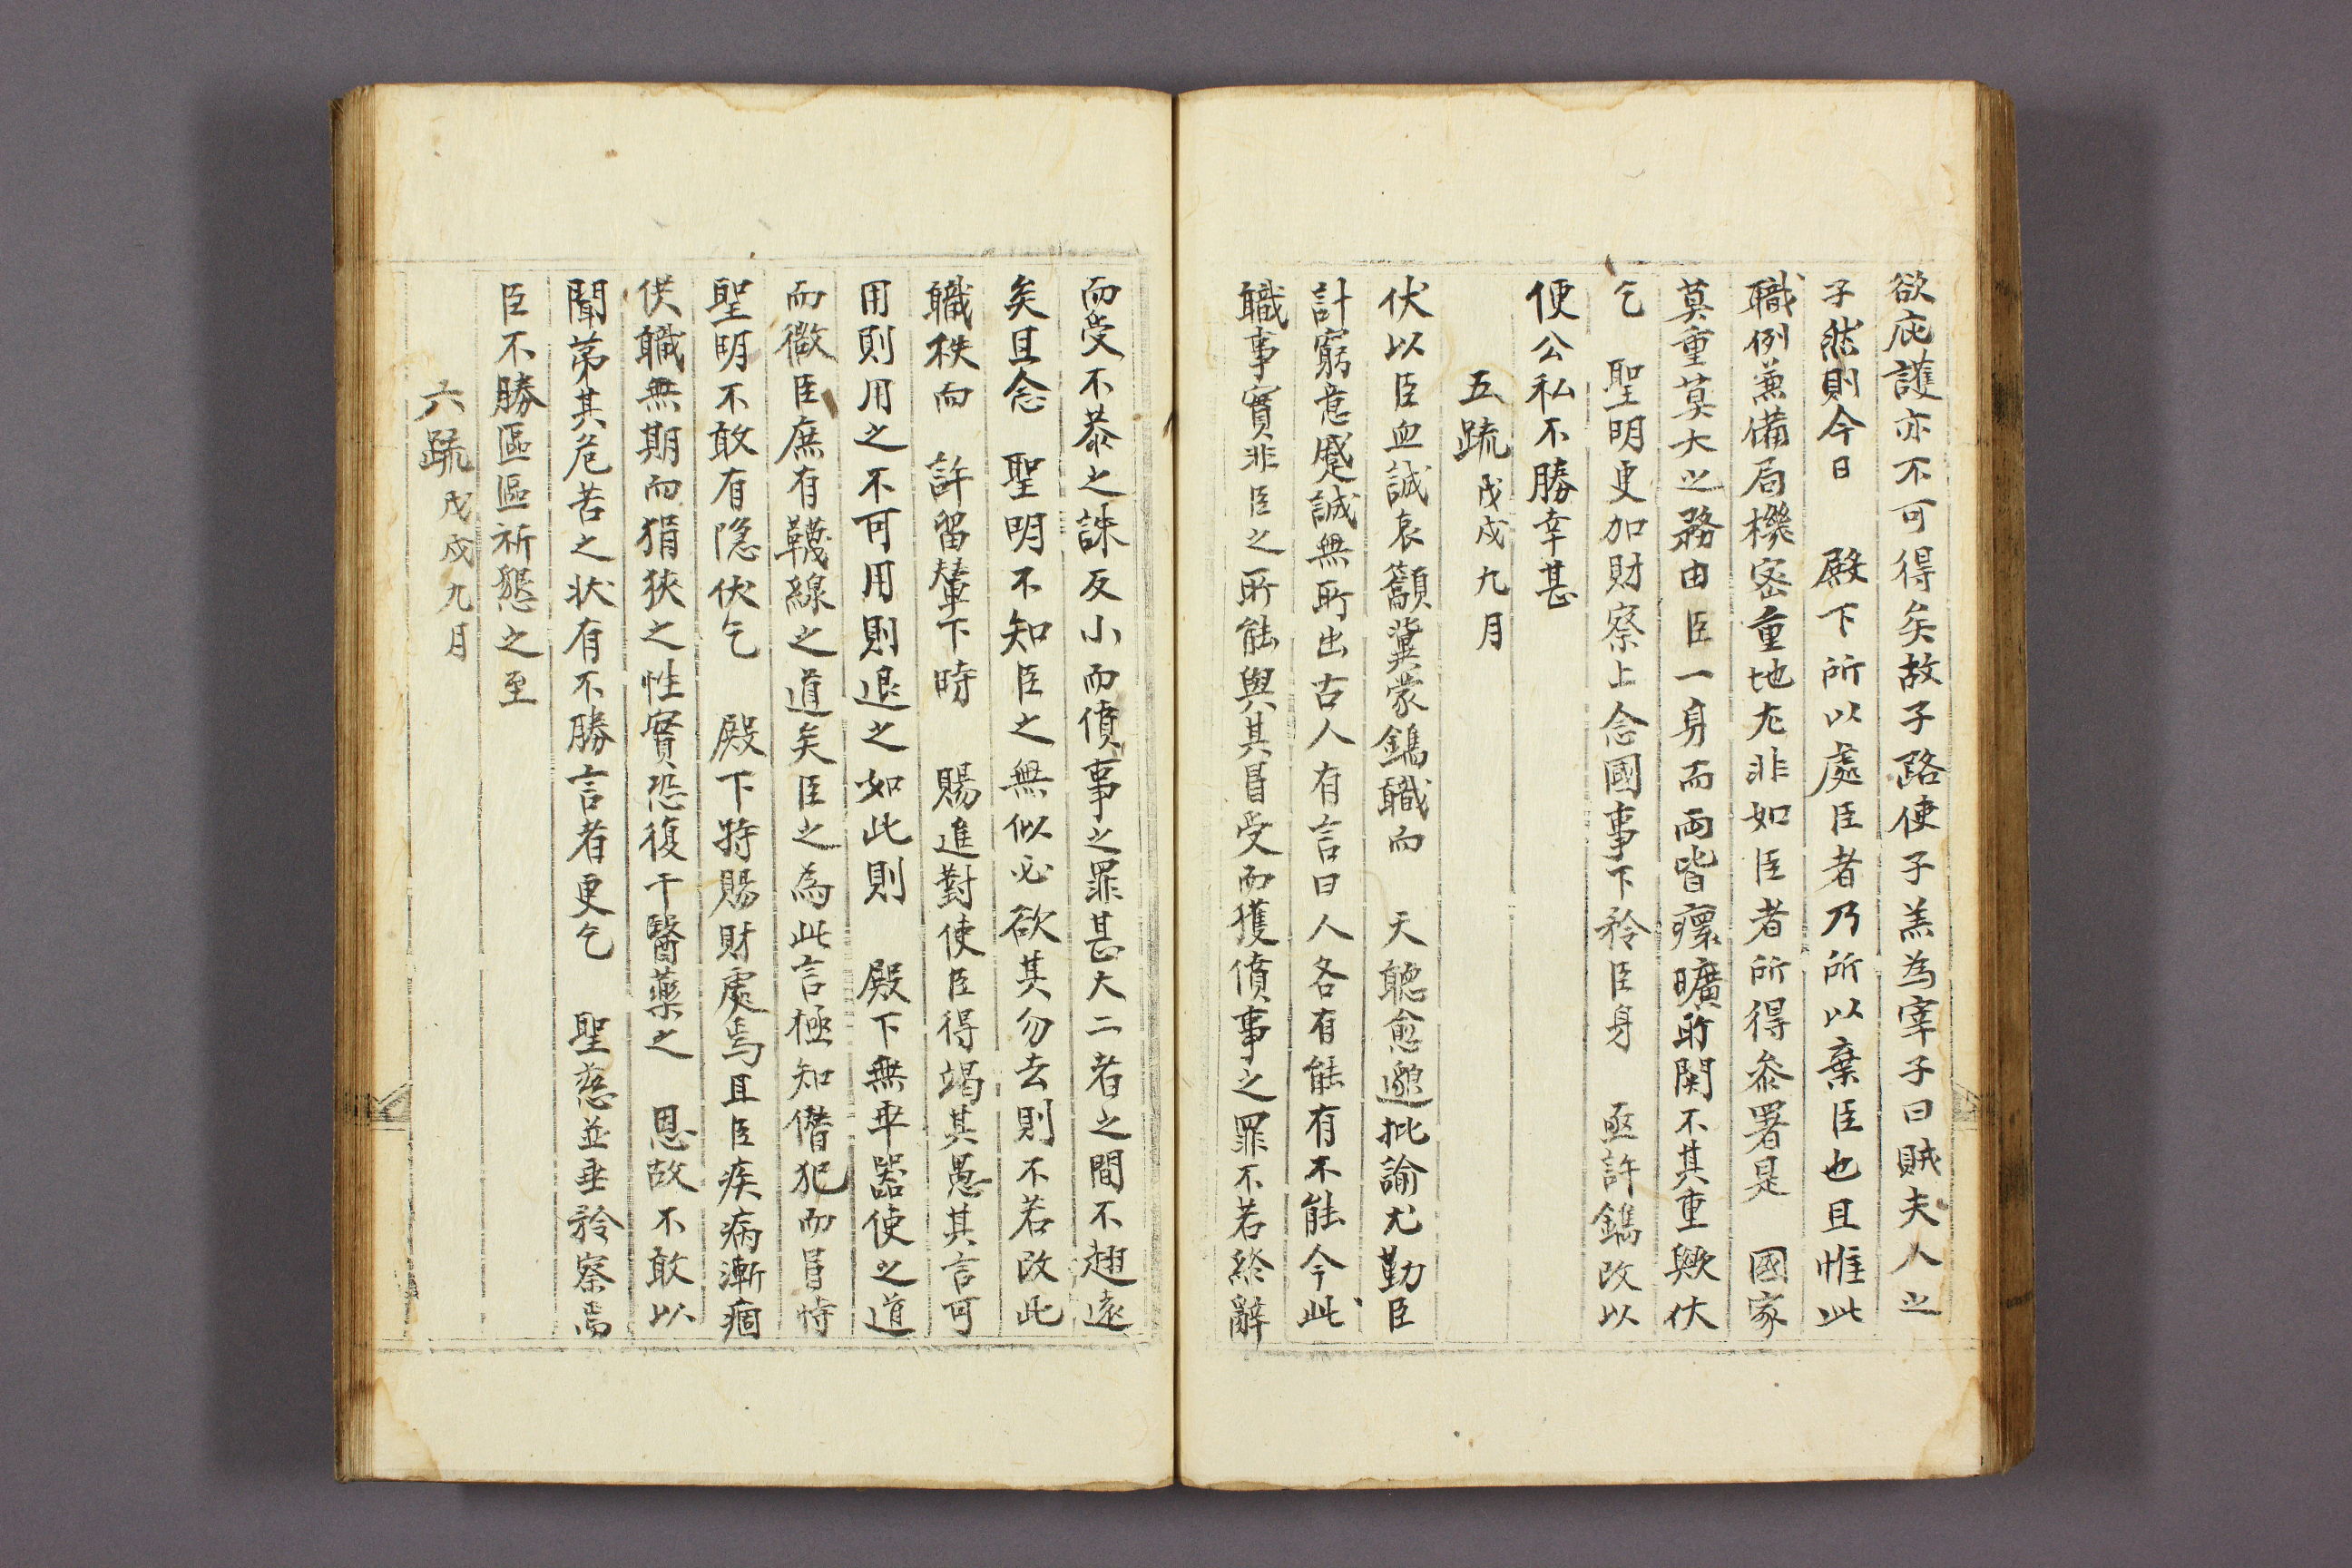 欲庇護亦不可得矣故子路使子羔爲宰子曰賊夫人之
子然則今日 殿下所以處臣者乃所以棄臣也且惟此
職例兼備局機密重地尤非如臣者所得叅署是 國家
莫重莫大之務由臣一身而兩皆瘝曠所関不其重歟伏
乞 聖明更加財察上念國事下矜臣身 亟許鐫改以
便公私不勝幸甚
五疏戊戌九月
伏以臣血誠哀籲冀蒙鐫職而 天聽愈邈批諭尤勤臣
計窮意蹙誠無所出古人有言曰人各有能有不能今此
職事實非臣之所能與其冒受而獲僨事之罪不若終辭
而受不恭之誅反小而僨事之罪甚大二者之間不趐遠
矣且念 聖明不知臣之無似必欲其勿去則不若改此
職秩而 許留輦下時 賜進對使臣得竭其愚其言可
用則用之不可用則退之如此則 殿下無乖器使之道
而微臣庶有韈線之道矣臣之為此言極知僭犯而冒恃
聖明不敢有隱伏乞 殿下特賜財處焉且臣疾病漸痼
供職無期而狷狹之性實恐復干醫藥之 恩故不敢以
聞苐其危苦之状有不勝言者更乞 聖慈並垂矜察焉
臣不勝區區祈懇之至
六疏戊戌九月